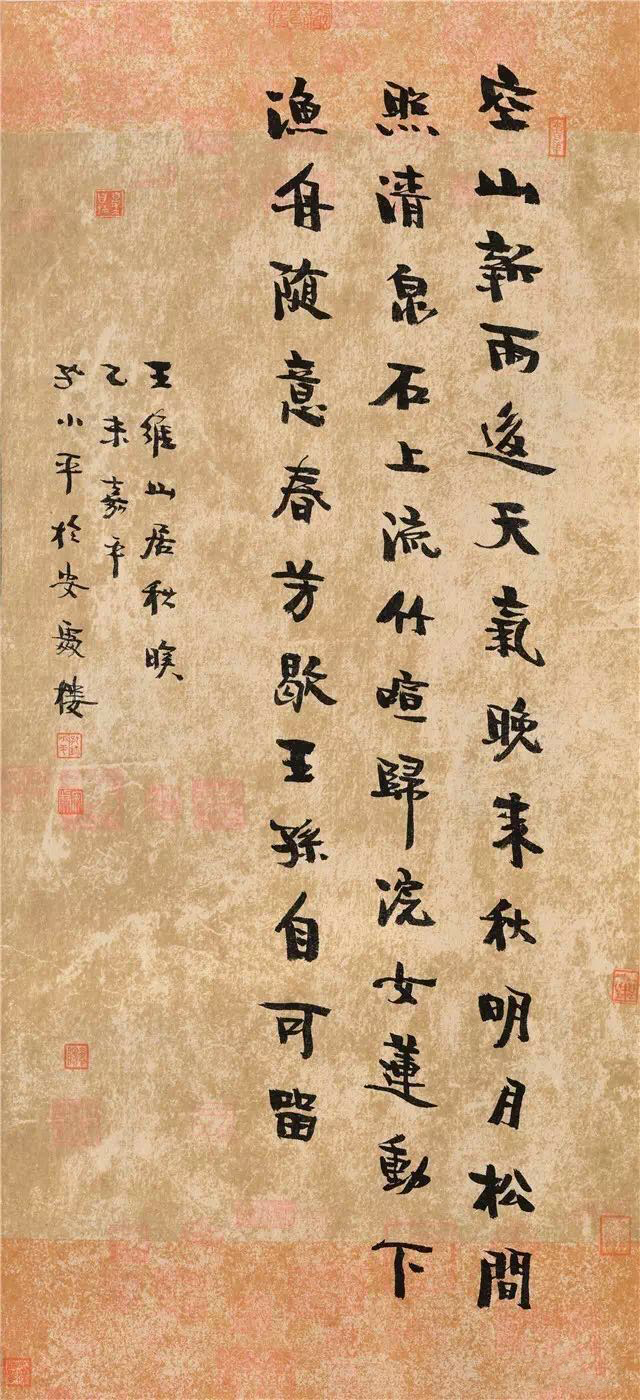 空山新雨後天氣晚来秋明月松間
照清泉石上流竹喧歸浣女蓮動下
漁舟隨意春芳歇王孫自可留
王維山居秋暝
乙未嘉平
孔小平於安處樓